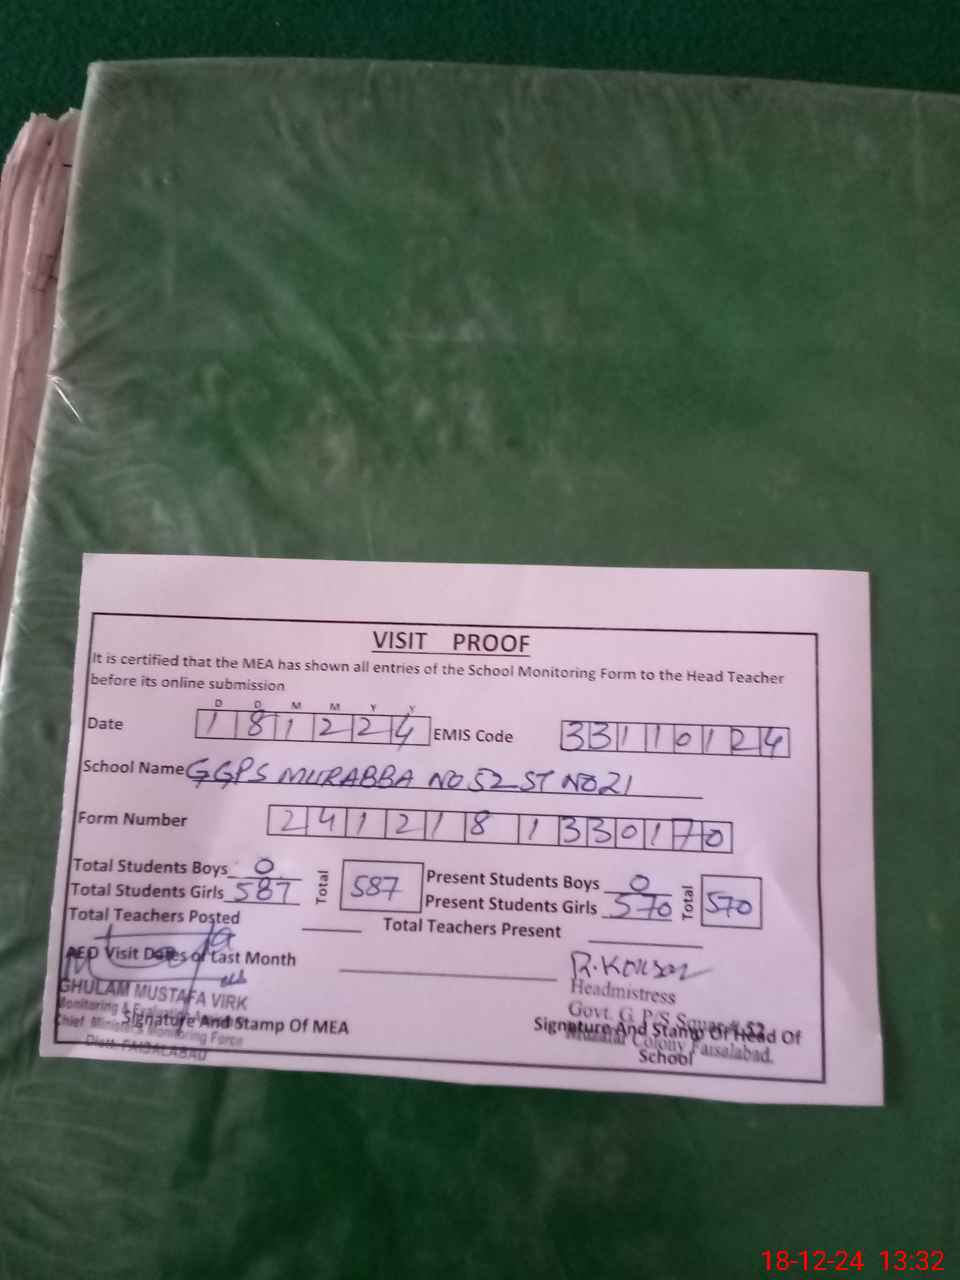 VISIT PROOF
It is certified that the MEA has shown all entries of the School Monitoring Form to the Head Teacher
before its online submission
D D M M Y Y
Date 181224 EMIS Code 33110124
School Name GGPS MURABBA NO 52 ST NO 21
Form Number 2412181330170
Total Students Boys 0 Total 587 Present Students Boys 0 Total 570
Total Students Girls 587 Present Students Girls 570
Total Teachers Posted Total Teachers Present
AEO Visit Dates of Last Month
GHULAM MUSTAFA VIRK
Monitoring & Evaluation
Chief Minister's Monitoring Force
Distt. FAISALABAD
Signature And Stamp Of MEA
Headmistress
Govt. G. P/S Square # 52
Muzafar Colony Faisalabad.
Signature And Stamp Of Head Of
School
18-12-24 13:32